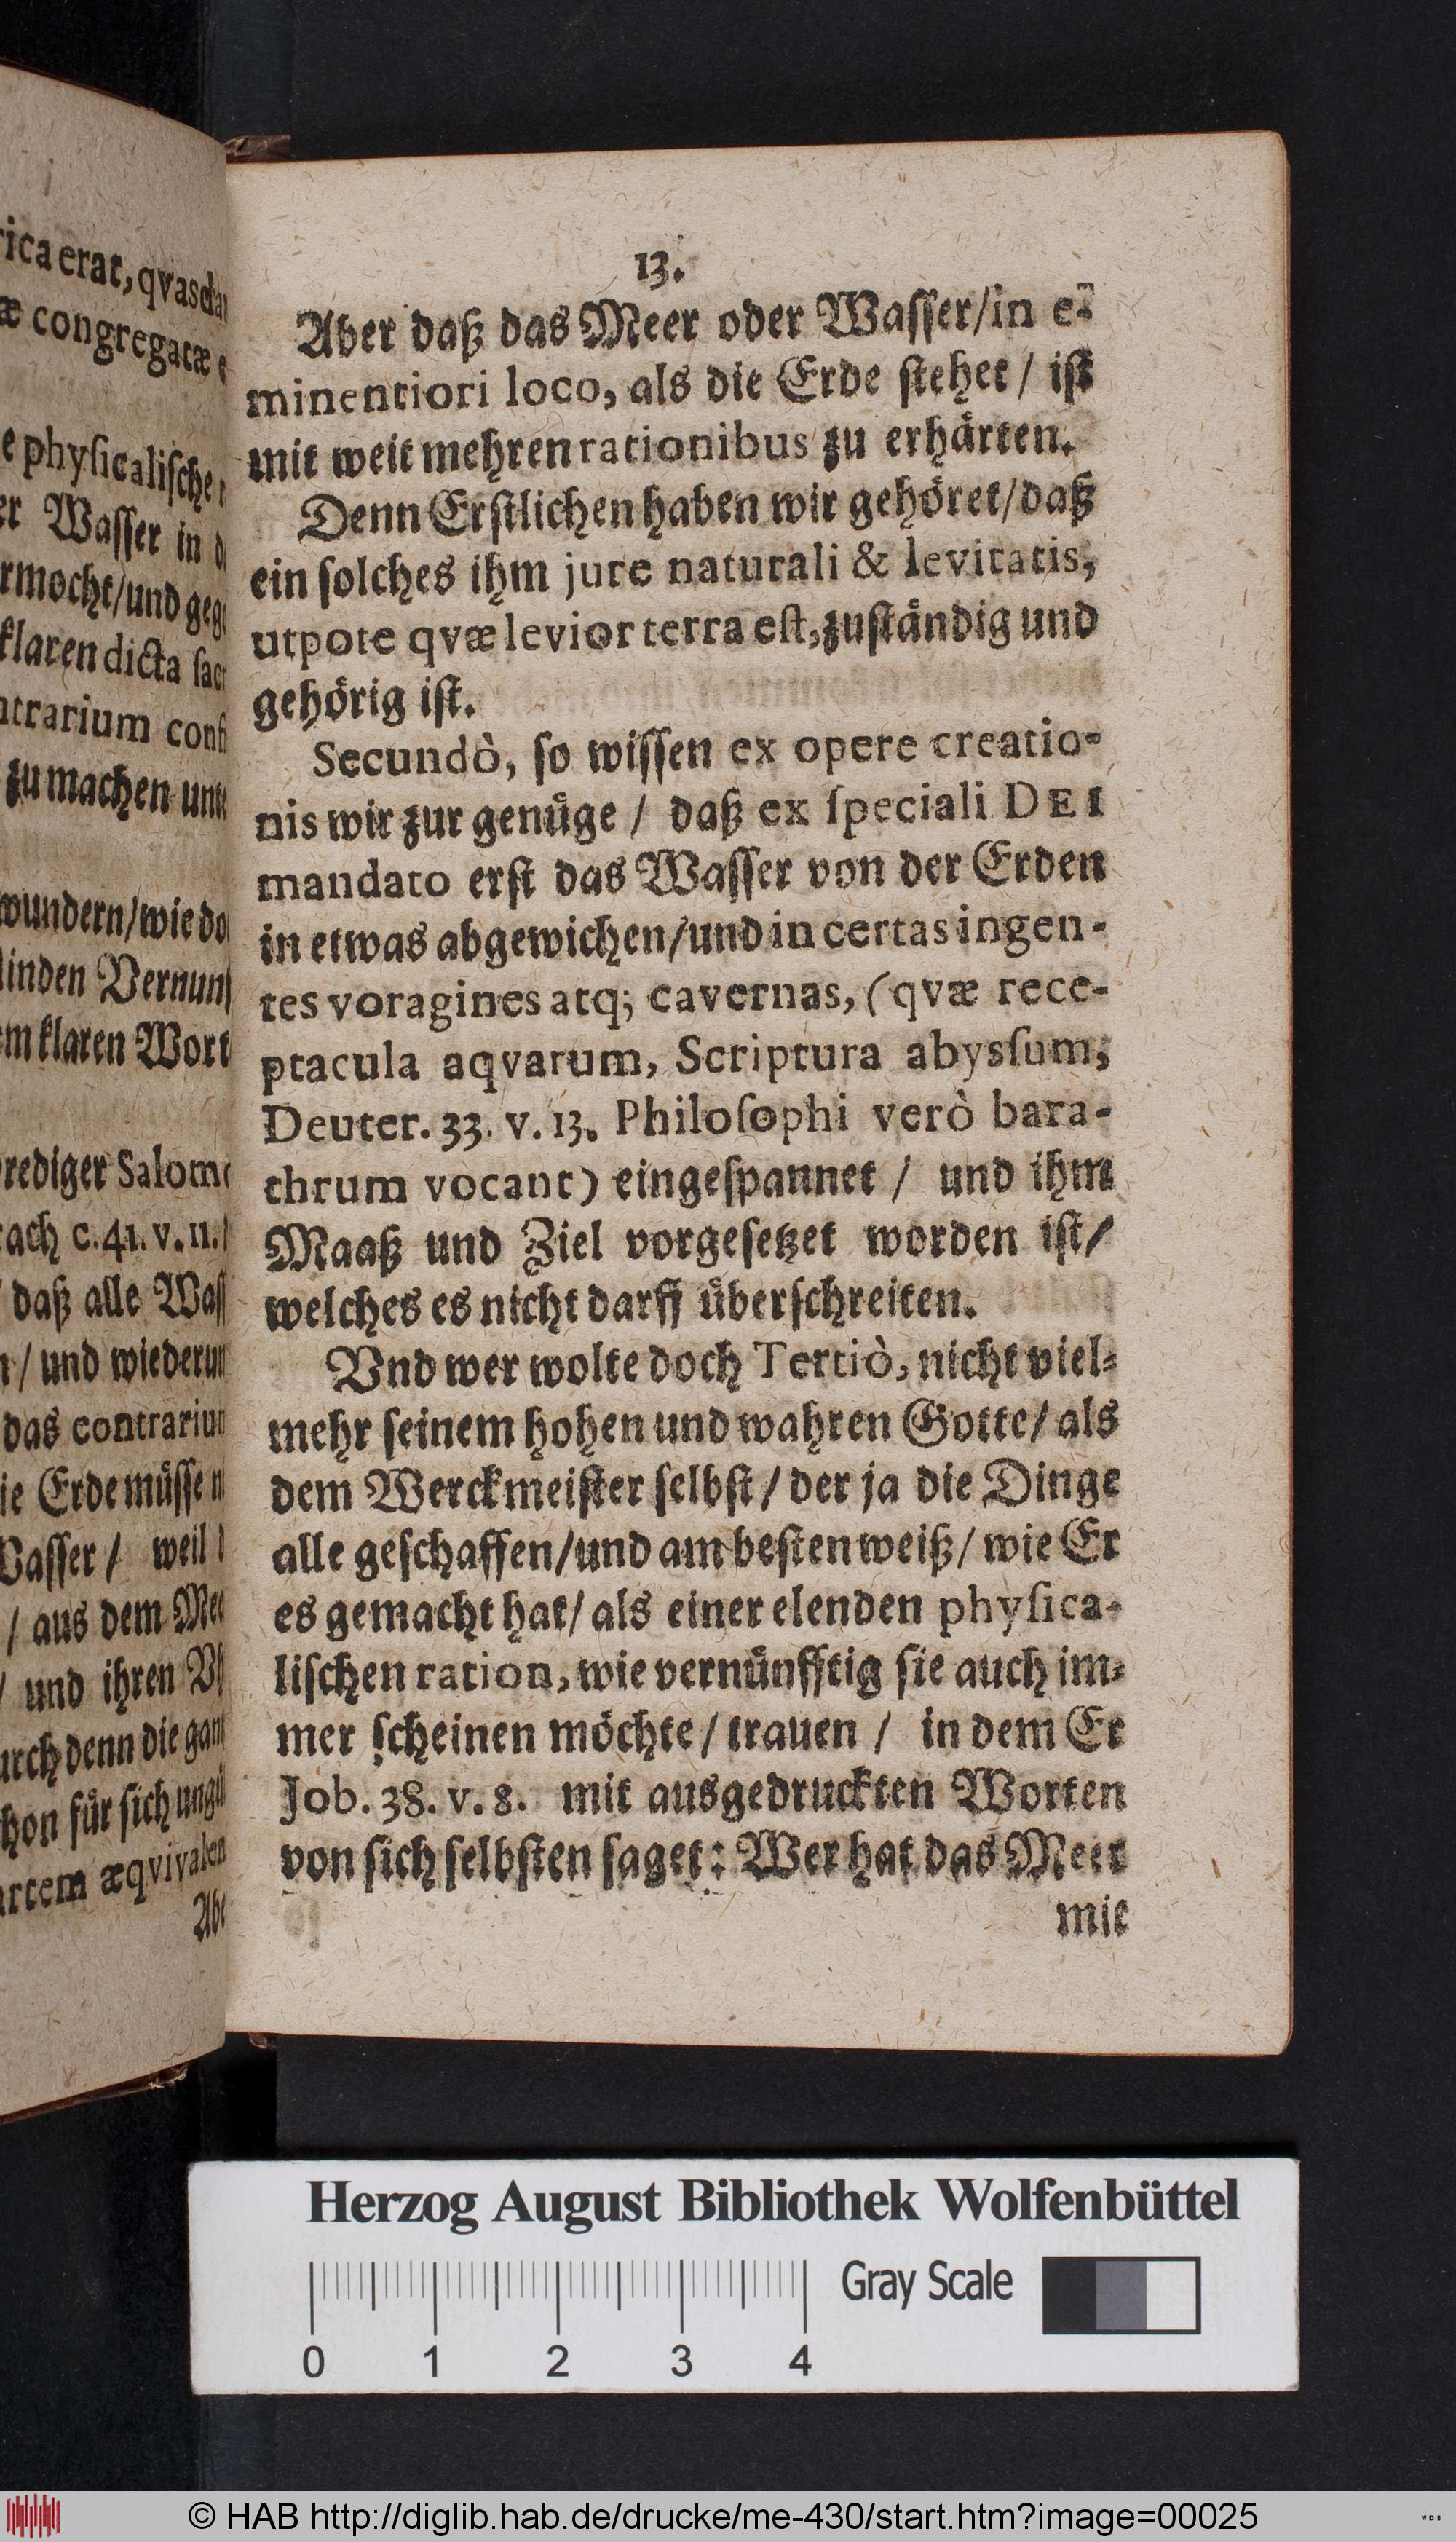 rica erat, qvasda
æ congregatæ
e phyſicaliſche
er Waſſer in
rmocht/und geg
klaren dicta ſacr
ntrarium conſi
zu machen unte
wundern/wie do
linden Vernunf
em klaren Wort
rediger Salomo
rach c. 41. v. 11.
daß alle Waſſ
n / und wiederum
das contrarium
ie Erde müſſe n
Waſſer / weil
/ aus dem Mee
/ und ihren Vſ
urch denn die gan
hon für ſich ungü
artem æqvivalen
Abe
13.
Aber daß das Meer oder Waſſer/in e-
minentiori loco, als die Erde ſtehet / iſt
mit weit mehren rationibus zu erhärten.
Denn Erſtlichen haben wir gehöret/daß
ein ſolches ihm jure naturali & levitatis,
utpote qvæ levior terra eſt, zuſtändig und
gehörig iſt.
Secundò, ſo wiſſen ex opere creatio-
nis wir zur genüge / daß ex ſpeciali DEI
mandato erſt das Waſſer von der Erden
in etwas abgewichen/und in certas ingen-
tes voragines atq; cavernas, (qvæ rece-
ptacula aqvarum, Scriptura abysſum,
Deuter. 33. v. 13. Philoſophi verò bara-
thrum vocant) eingeſpannet / und ihm
Maaß und Ziel vorgeſetzet worden iſt/
welches es nicht darff überſchreiten.
Vnd wer wolte doch Tertiò, nicht viel-
mehr ſeinem hohen und wahren Gotte/ als
dem Werckmeiſter ſelbſt / der ja die Dinge
alle geſchaffen/und am beſten weiß/ wie Er
es gemacht hat/ als einer elenden phyſica-
liſchen ration, wie vernünfftig ſie auch im-
mer ſcheinen möchte / trauen / in dem Er
Job. 38. v. 8. mit ausgedruckten Worten
von ſich ſelbſten ſaget: Wer hat das Meer
mit
Herzog August Bibliothek Wolfenbüttel
Gray Scale
0 1 2 3 4
© HAB http://diglib.hab.de/drucke/me-430/start.htm?image=00025
WDB